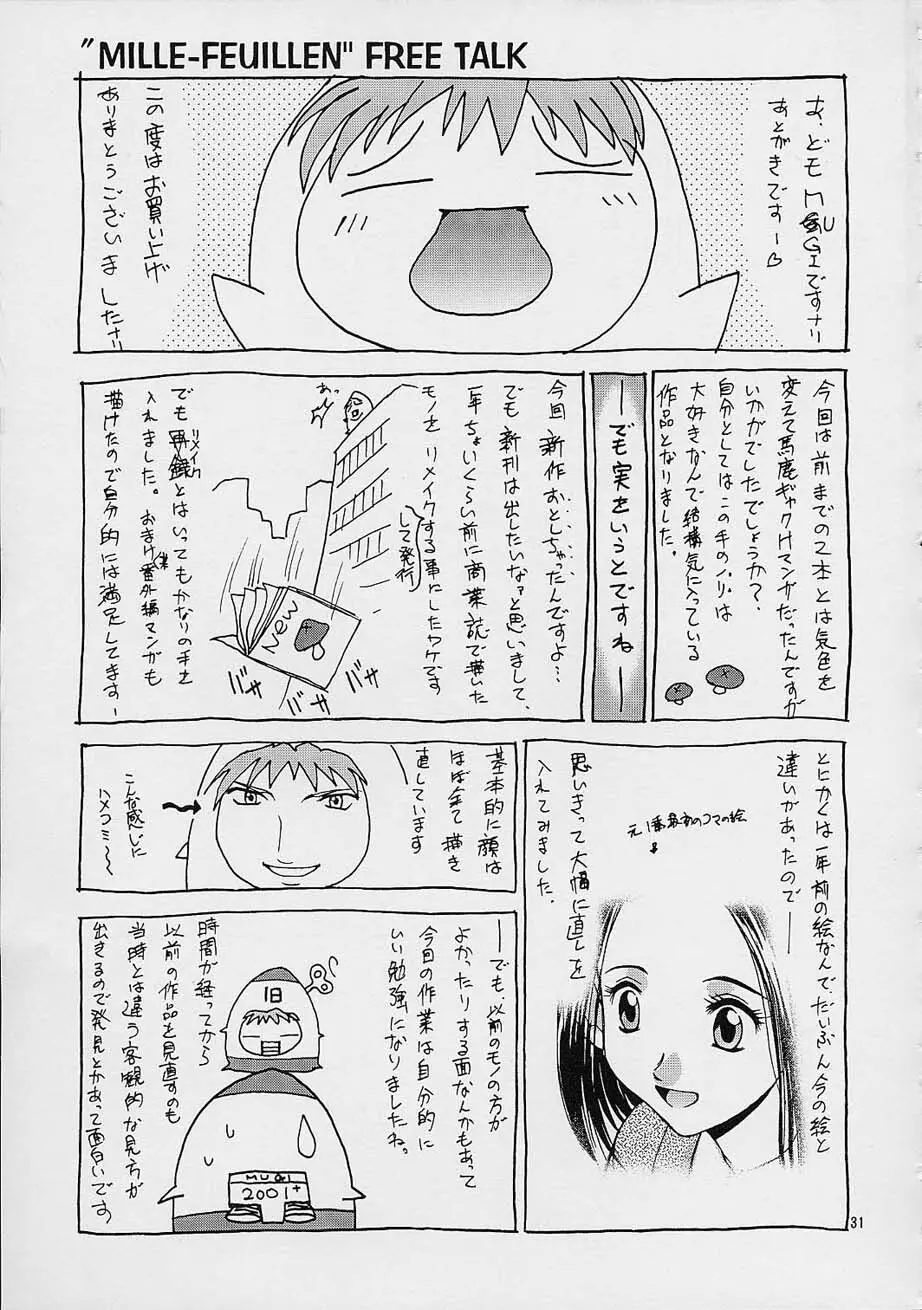 "MILLE-FEUILLEN" FREE TALK
あ、どもMUGIですナリ
あとがきですー♡
この度はお買い上げ
ありまとうございましたナリ
今回は前までの2本とは気色を
変えて馬鹿ギャグマンガだったんですが
いかがでしたでしょうか?
自分としてはこの手のノリは
大好きなんで結構気に入っている
作品となりました。
―でも実をいうとですね―
今回新作おとしちゃったんですよ…
でも新刊は出したいなァと思いまして、
一年ちょいくらい前に商業誌で描いた
モノをリメイクする事にしたワケです
して発行
あっ
New
バサ
バサ
バサ
でも再録とはいってもかなりの手を
リメイク
入れました。おまけ番外編マンガも
描けたので自分的には満足してます―
とにかくは一年前の絵なんで、だいぶん今の絵と
違いがあったので――
思いきって大幅に直しを
入れてみました。
元1番最初のコマの絵
基本的に顔は
ほぼ全て描き
直しています
こんな感じに
ハメコミ〜〜
―でも、以前のモノの方が
よかったりする面なんかもあって
今回の作業は自分的に
いい勉強になりましたね。
時間が経ってから
以前の作品を見直すのも
当時とは違う客観的な見方が
出きるので発見とかあって面白いです
旧
MUGI
2001+
31